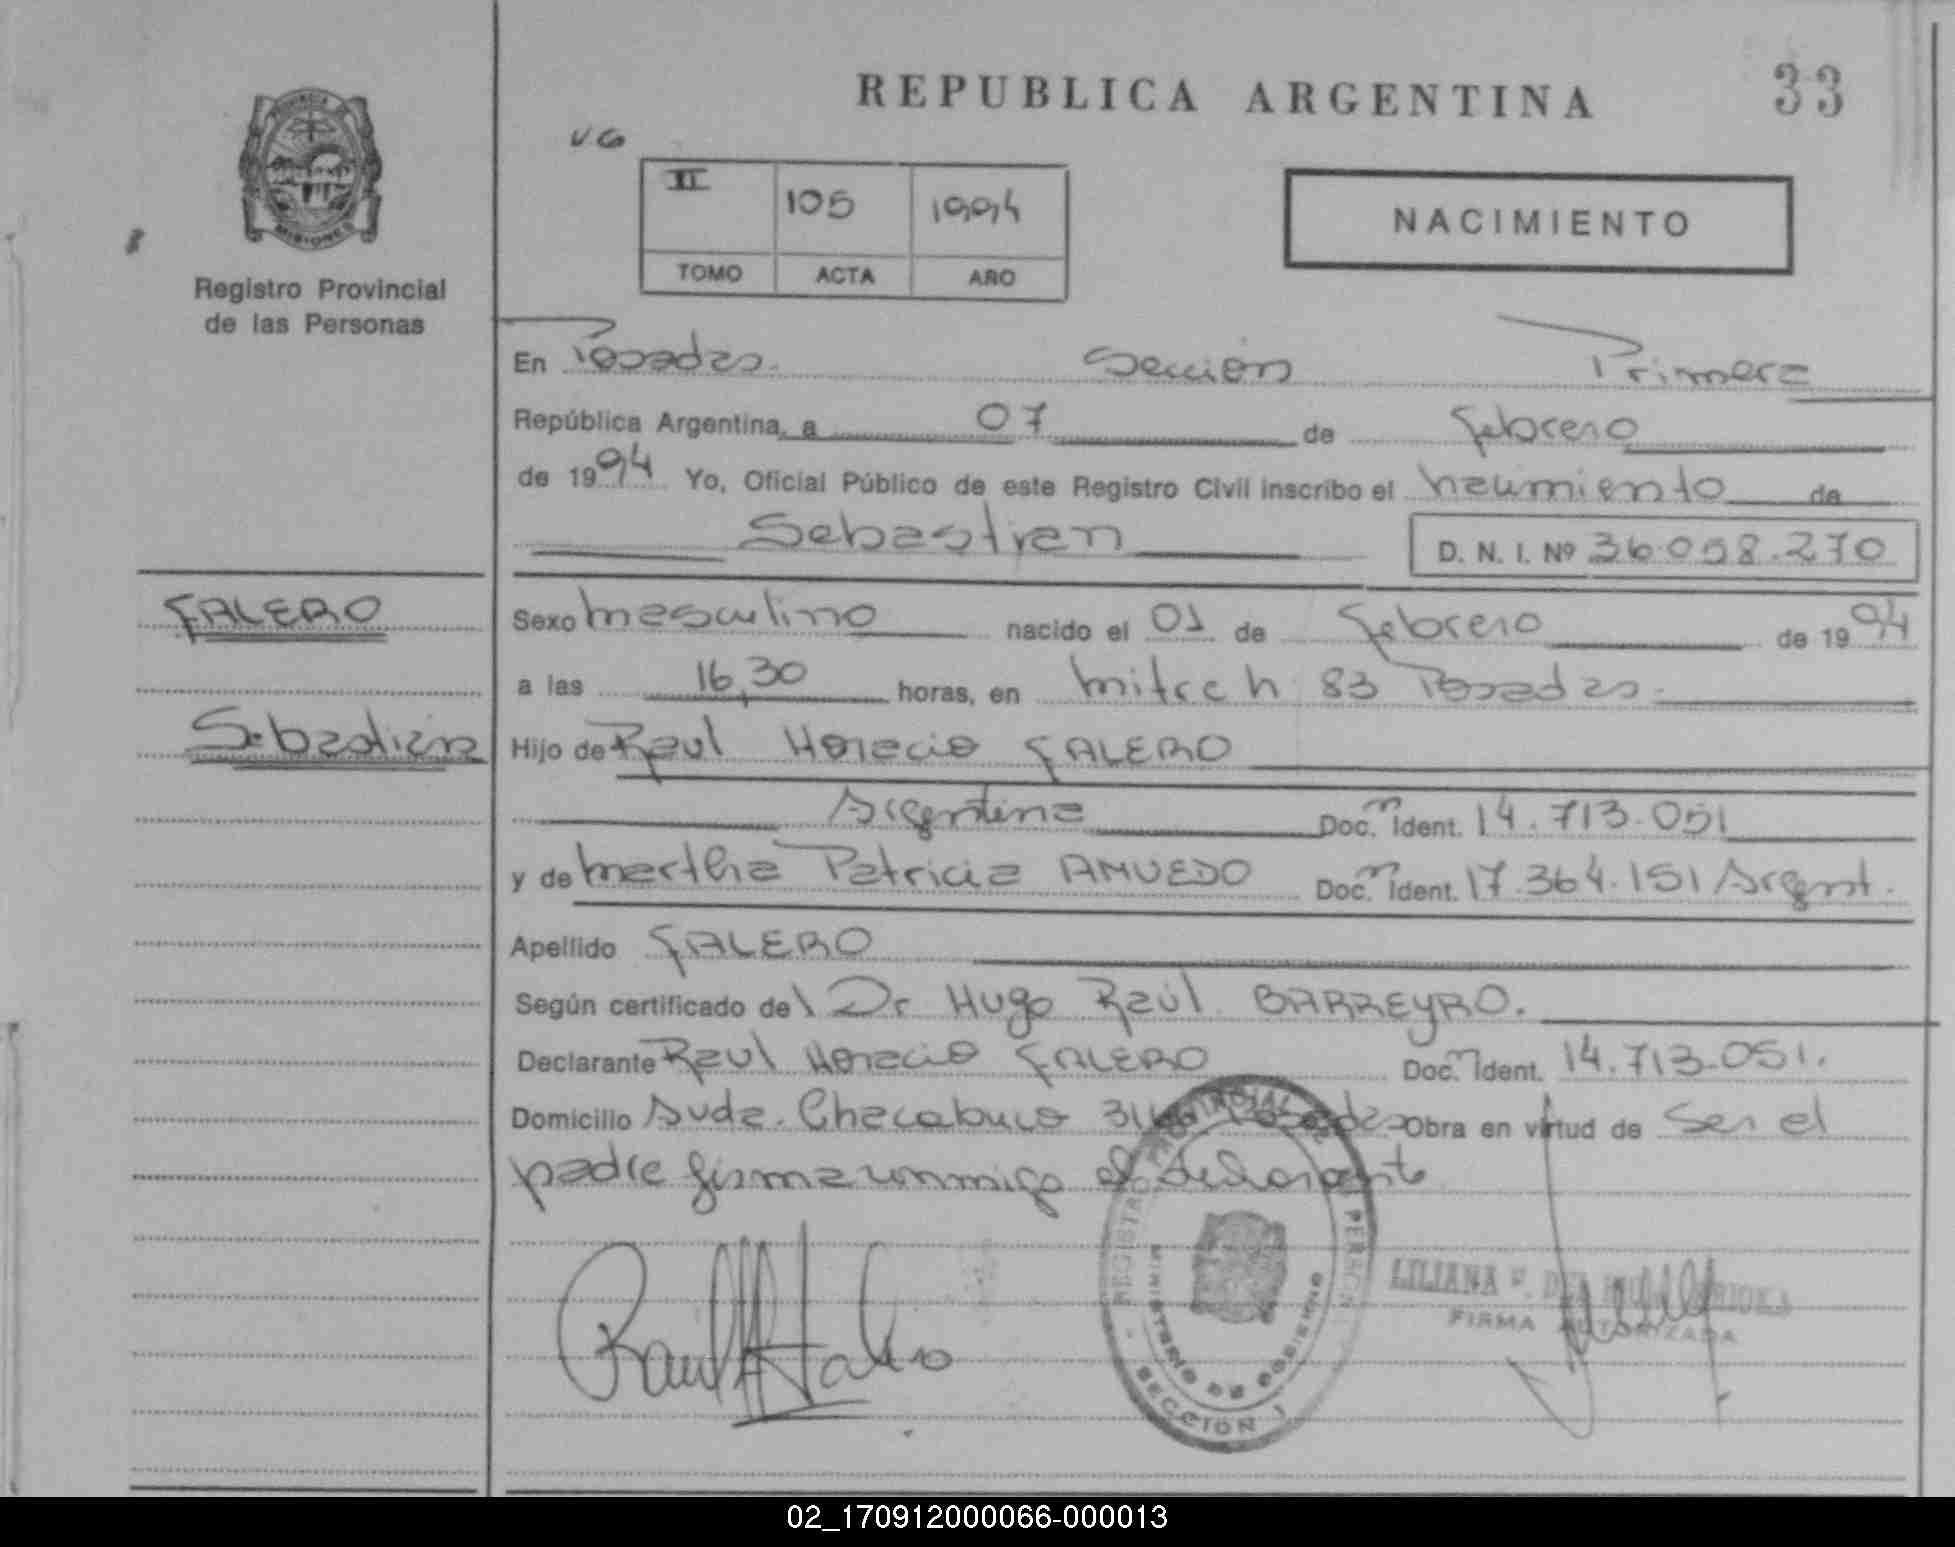 REPUBLICA ARGENTINA
33
V.G
II 105 1994
TOMO ACTA AÑO
NACIMIENTO
MISIONES
Registro Provincial
de las Personas
En Posadas. Sección Primera
República Argentina, a 07 de febrero
de 1994 Yo, Oficial Público de este Registro Civil inscribo el nacimiento de
Sebastian
D. N. I. Nº 36.058.270
FALERO
Sebastian
Sexo masculino nacido el 01 de febrero de 1994
a las 16,30 horas, en mitre n 83 Posadas.
Hijo de Raul Horacio FALERO
Argentina Doc. Ident. 14.713.051
y de martha Patricia AMUEDO Doc. Ident. 17.364.151 Argent.
Apellido FALERO
Según certificado del Dr Hugo Raúl BARREYRO.
Declarante Raul Horacio FALERO Doc. Ident. 14.713.051.
Domicilio Avda. Chacabuco Posadas Obra en virtud de ser el
padre firma conmigo el declarante
REGISTRO PROVINCIAL
MINISTERIO DE GOBIERNO
SECCION 1
LILIANA
FIRMA AUTORIZADA
02_170912000066-000013